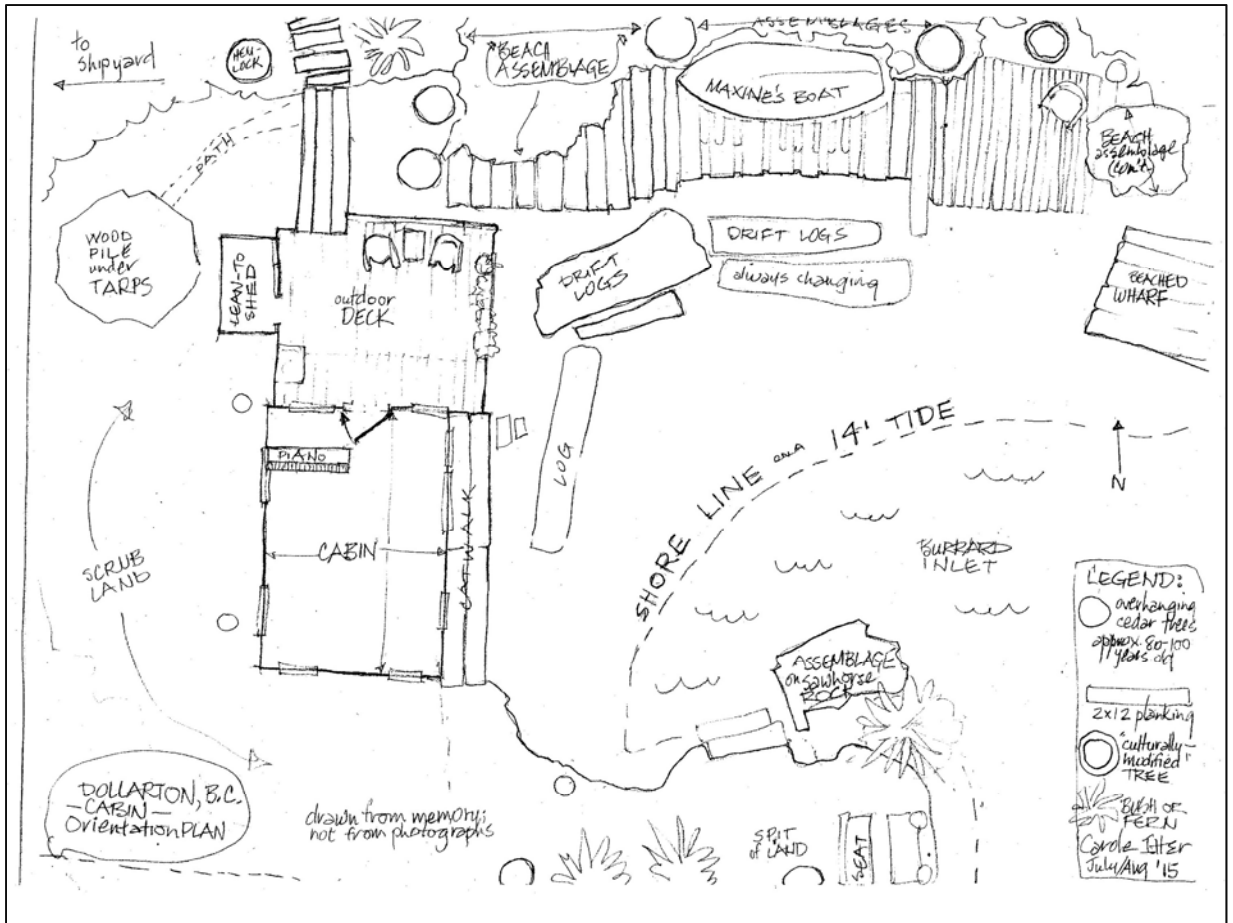 to
shipyard
HEM-
LOCK
BEACH
ASSEMBLAGE
ASSEMBLAGES
MAXINE'S BOAT
BEACH
assemblage
(con't.)
PATH
WOOD
PILE
under
TARPS
LEAN-TO
SHED
outdoor
DECK
DRIFT
LOGS
DRIFT LOGS
always changing
BEACHED
WHARF
PIANO
LOG
SHORE LINE on a 14' TIDE
N
CABIN
CATWALK
SCRUB
LAND
BURRARD
INLET
ASSEMBLAGE
on sawhorse
ROCK
LEGEND:
overhanging
cedar trees
approx. 80-100
years old
2x12 planking
"culturally-
modified"
TREE
BUSH OR
FERN
Carole Itter
July/Aug '15
DOLLARTON, B.C.
- CABIN -
Orientation PLAN
drawn from memory;
not from photographs
SPIT
of LAND
SEAT